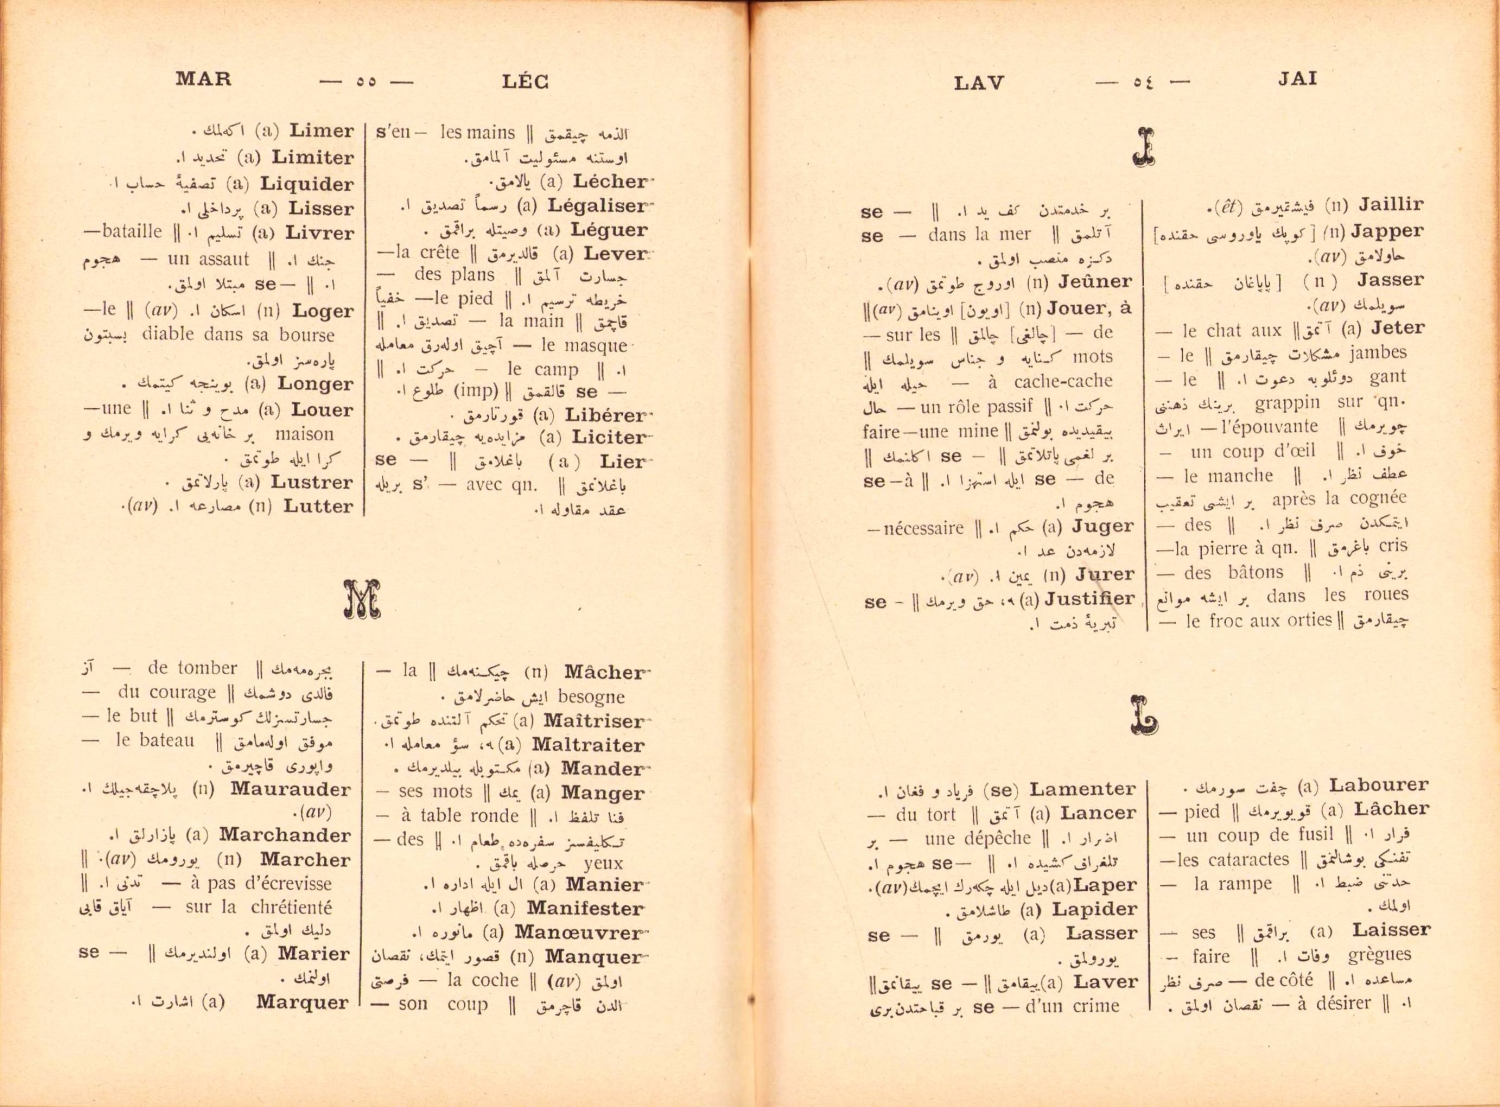 JAI — ٥٤ — LAV
J
Jaillir (n) فيشقيرمق (êt).
Japper (n) [كوپك ياوروسى حقنده]
حاولامق (av).
Jasser (n) [پاپاغان حقنده]
سويلمك (av).
Jeter (a) آتمق || — le chat aux
jambes مشكلات چيقارمق || — le
gant دوئلويه دعوت ا. || — le
grappin sur qn. برينك ذهننى
چويرمك || — l'épouvante ايراث
خوف ا. || — un coup d'œil
عطف نظر ا. || — le manche
après la cognée بر ايشى تعقيب
ايتمكدن صرف نظر ا. || — des
cris باغرمق || — la pierre à qn.
برينى ذم ا. || — des bâtons
dans les roues بر ايشه موانع
چيقارمق || — le froc aux orties
بر خدمتدن كف يد ا. || — se
آتلمق || — dans la mer se
دكزه منصب اولمق.
Jeûner (n) اوروج طوتمق (av).
Jouer, à (n) [اويون] اوينامق (av) ||
de — [چالغى] چالمق || — sur les
mots كنايه و جناس سويلمك ||
à cache-cache — حيله ايله
حركت ا. || — un rôle passif حال
بيقيديده بولنمق || faire — une mine
بر لغمى پاتلاتمق || — se اكلنمك ||
se — de ايله استهزا ا. || se — à
هجوم ا.
Juger (a) حكم ا. || — nécessaire
لازمه‌دن عد ا.
Jurer (n) يمين ا. (av).
Justifier (a) ه، حق ويرمك || — se
تبريهٔ ذمت ا.
L
Labourer (a) چفت سورمك.
Lâcher (a) قويويرمك || — pied
فرار ا. || — un coup de fusil
تفنكى بوشالتمق || — les cataractes
حدتنى ضبط ا. || — la rampe
اولمك.
Laisser (a) براقمق || — ses
grègues وفات ا. || — faire
مساعده ا. || — de côté صرف نظر
ا. || — à désirer نقصان اولمق.
Lamenter (se) فرياد و فغان ا.
Lancer (a) آتمق || — du tort
اضرار ا. || — une dépêche بر
تلغرافى كشيده ا. || — se هجوم ا.
Laper (a) ديل ايله چكه‌رك ايچمك (av).
Lapider (a) طاشلامق.
Lasser (a) يورمق || — se
يورولمق.
Laver (a) ييقامق || — se ييقانمق ||
se — d'un crime بر قباحتدن برى
LÉG — ٥٥ — MAR
الذمه چيقمق || s'en — les mains
اوستنه مسئوليت آلمامق.
Lécher (a) يالامق.
Légaliser (a) رسماً تصديق ا.
Léguer (a) وصيتله براقمق.
Lever (a) قالديرمق || — la crête
جسارت آلمق || — des plans
خريطه ترسيم ا. || — le pied خفياً
قاچمق || — la main تصديق ا. ||
le masque — آچيق اوله‌رق معامله
ا. || — le camp حركت ا. ||
— se قالقمق || (imp) طلوع ا.
Libérer (a) قورتارمق.
Liciter (a) مزايده‌يه چيقارمق.
Lier (a) باغلامق || — se
باغلانمق || s' — avec qn. بريله
عقد مقاوله ا.
Limer (a) اكه‌لمك.
Limiter (a) تحديد ا.
Liquider (a) تصفيهٔ حساب ا.
Lisser (a) پرداخلى ا.
Livrer (a) تسليم ا. || — bataille
جنك ا. || — un assaut هجوم
ا. || — se مبتلا اولمق.
Loger (n) اسكان ا. (av) || — le
diable dans sa bourse بسبتون
پاره‌سز اولمق.
Longer (a) بوينجه كيتمك.
Louer (a) مدح و ثنا ا. || — une
maison بر خانه‌يى كرايه ويرمك و
كرا ايله طوتمق.
Lustrer (a) پارلاتمق.
Lutter (n) مصارعه ا. (av).
M
Mâcher (n) چيكنه‌مك || — la
besogne ايش حاضرلامق.
Maîtriser (a) تحكم آلتنده طوتمق.
Maltraiter (a) ه، سؤ معامله ا.
Mander (a) مكتوبله بيلديرمك.
Manger (a) يمك || — ses mots
فنا تلفظ ا. || — à table ronde
تكليفسز سفره‌ده طعام ا. || — des
yeux حرصله باقمق.
Manier (a) ال ايله اداره ا.
Manifester (a) اظهار ا.
Manœuvrer (a) مانوره ا.
Manquer (n) قصور ايتمك، نقصان
اولمق (av) || — la coche فرصتى
الدن قاچرمق || — son coup
بجره‌مه‌مك || — de tomber آز
قالدى دوشمك || — du courage
جسارتسزلك كوسترمك || — le but
موفق اوله‌مامق || — le bateau
واپورى قاچيرمق.
Maurauder (n) پلاچقه‌جيلك ا.
(av).
Marchander (a) پازارلق ا.
Marcher (n) يورومك (av). ||
à pas d'écrevisse — تدنى ا. ||
sur la chrétienté — آياق قابى
دليك اولمق.
Marier (a) اولنديرمك || — se
اولنمك.
Marquer (a) اشارت ا.